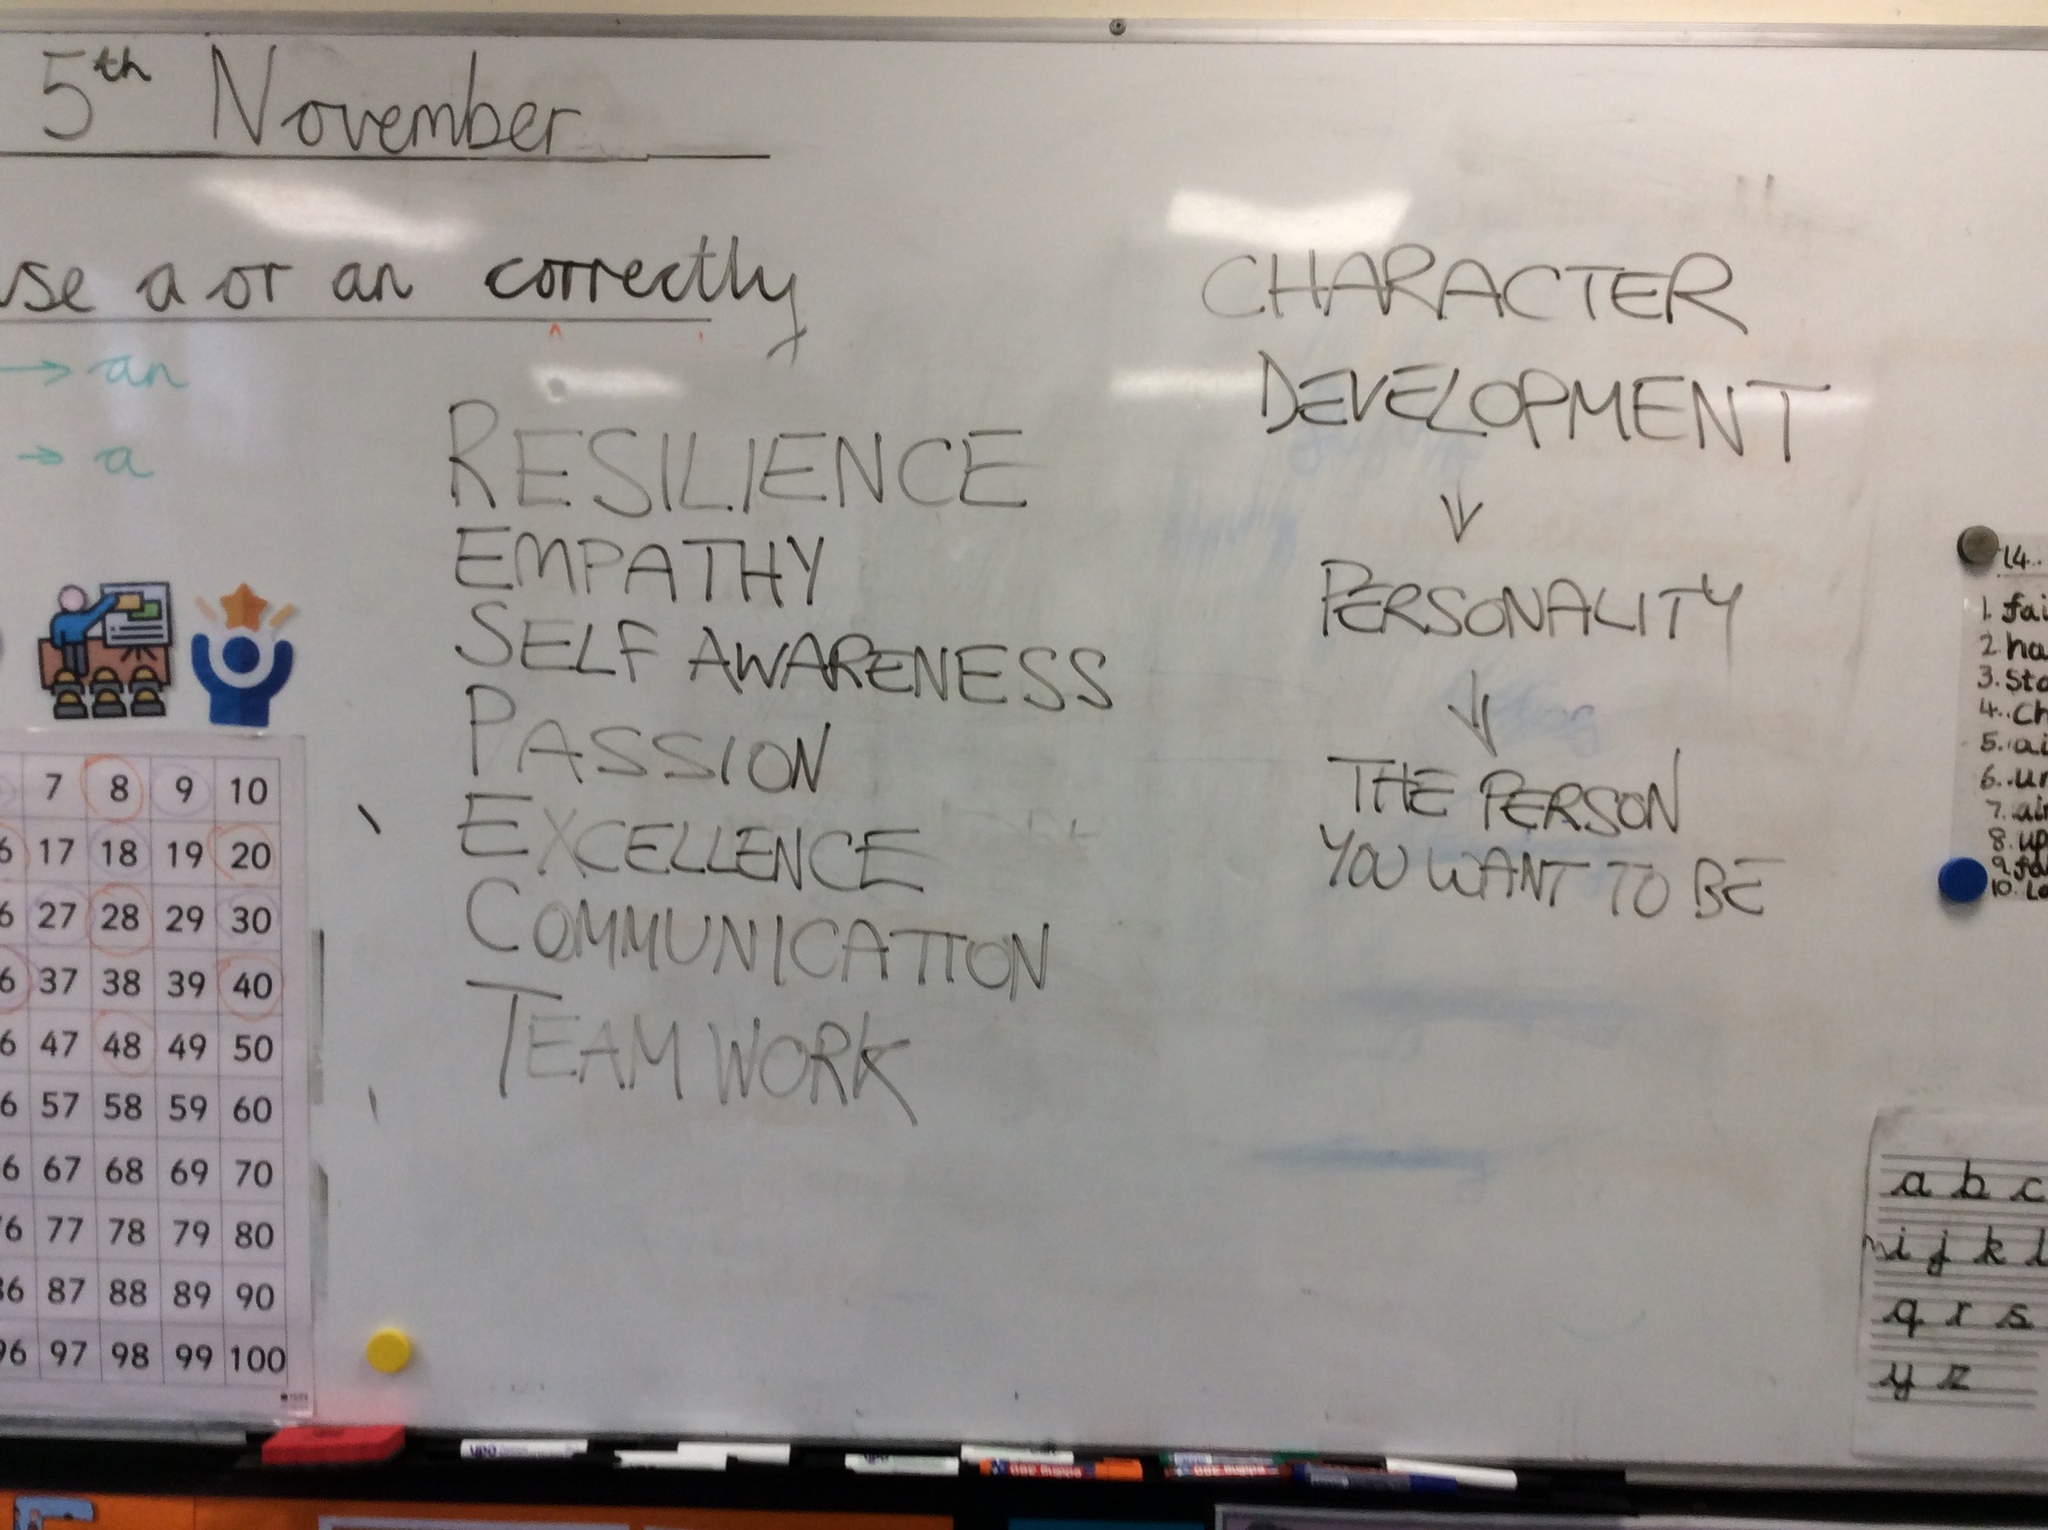 5th November
use a or an correctly
→ an
→ a
RESILIENCE
EMPATHY
SELF AWARENESS
PASSION
EXCELLENCE
COMMUNICATION
TEAM WORK
CHARACTER
DEVELOPMENT
↓
PERSONALITY
↓
THE PERSON
YOU WANT TO BE
7 8 9 10
6 17 18 19 20
6 27 28 29 30
6 37 38 39 40
6 47 48 49 50
6 57 58 59 60
6 67 68 69 70
76 77 78 79 80
86 87 88 89 90
96 97 98 99 100
14..
1. fai
2. ha
3. sta
4. ch
5. ai
6. un
7. air
8. up
9. fai
10.
a b c
i j k l
q r s
y z